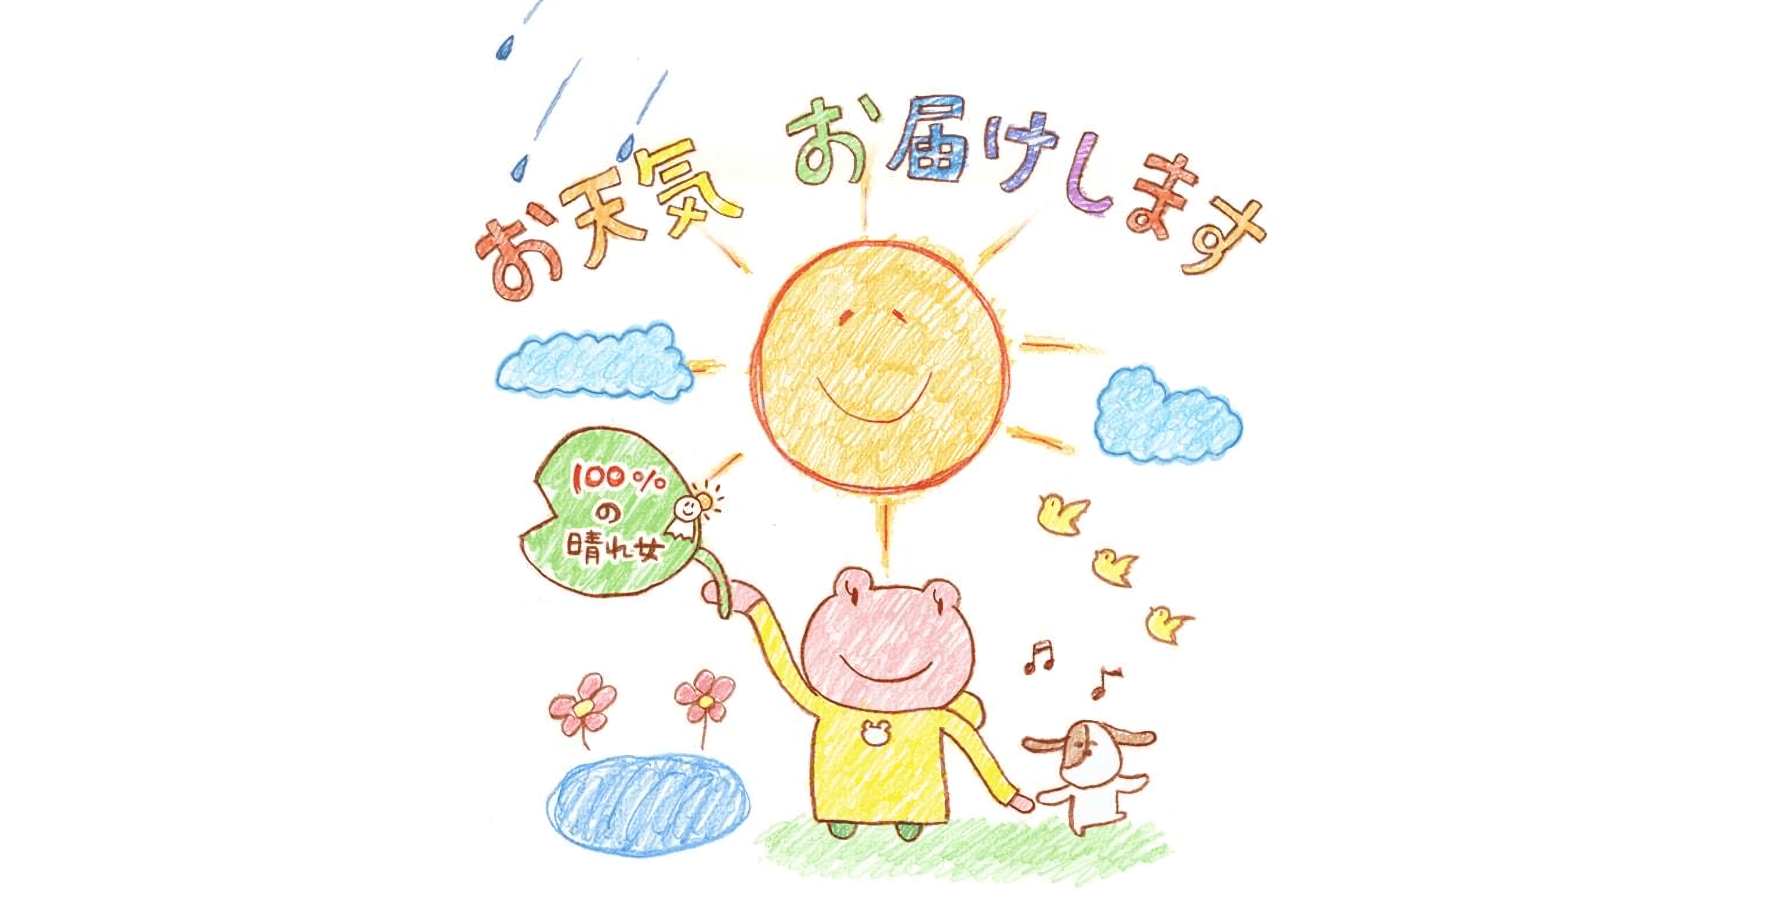 お天気 お届けします
100%
の
晴れ女